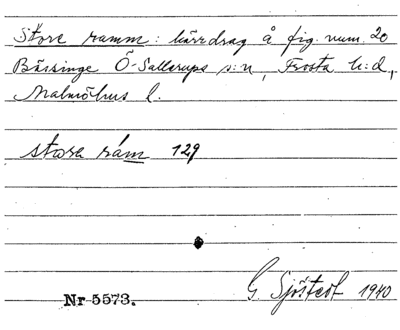 Store ramm: kärrdrag å fig. num. 20
Bässinge Ö-Sallerups s:n, Frosta h:d,
Malmöhus l.
store råm 129
G. Sjöstedt 1940
Nr 5573.